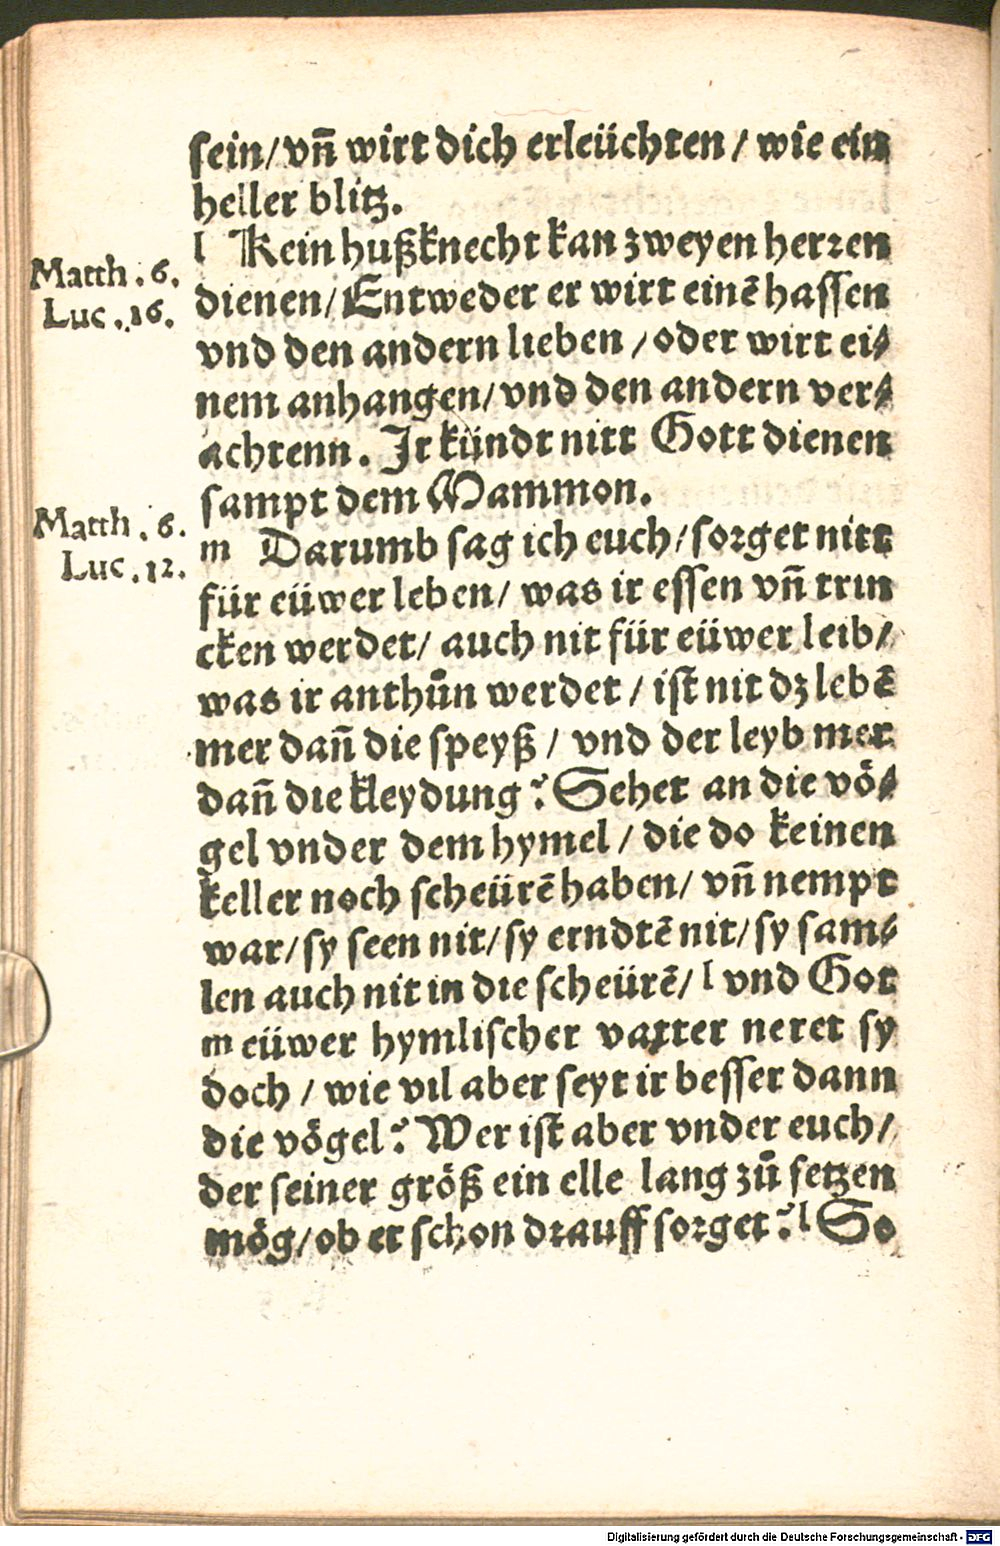 sein/ vñ wirt dich erleüchten / wie ein
heller blitz.
l Kein hußknecht kan zweyen herren
Matth. 6.
dienen/ Entweder er wirt einē hassen
Luc. 16.
vnd den andern lieben / oder wirt ei⸗
nem anhangen/ vnd den andern ver⸗
achtenn. Ir kündt nitt Gott dienen
sampt dem Mammon.
Matth. 6.
m Darumb sag ich euch/ sorget nitt
Luc. 12.
für eüwer leben/ was ir essen vñ trin
cken werdet/ auch nit für eüwer leib/
was ir anthůn werdet / ist nit dz lebē
mer dañ die speyß / vnd der leyb mer
dañ die kleydung? Sehet an die vö⸗
gel vnder dem hymel / die do keinen
keller noch scheürē haben/ vñ nempt
war/ sy seen nit/ sy erndtē nit/ sy sam⸗
len auch nit in die scheürē/ l vnd Got
m eüwer hymlischer vatter neret sy
doch / wie vil aber seyt ir besser dann
die vögel? Wer ist aber vnder euch/
der seiner größ ein elle lang zů setzen
mög/ ob er schon drauff sorget? l So
Digitalisierung gefördert durch die Deutsche Forschungsgemeinschaft - DFG